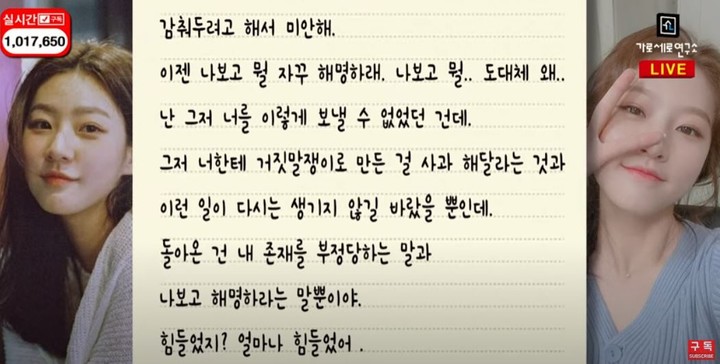 실시간 구독
1,017,650
감춰두려고 해서 미안해.
이젠 나보고 뭘 자꾸 해명하래. 나보고 뭘.. 도대체 왜..
난 그저 너를 이렇게 보낼 수 없었던 건데.
그저 너한테 거짓말쟁이로 만든 걸 사과 해달라는 것과
이런 일이 다시는 생기지 않길 바랐을 뿐인데.
돌아온 건 내 존재를 부정당하는 말과
나보고 해명하라는 말뿐이야.
힘들었지? 얼마나 힘들었어 .
가로세로연구소
LIVE
구독
SUBSCRIBE